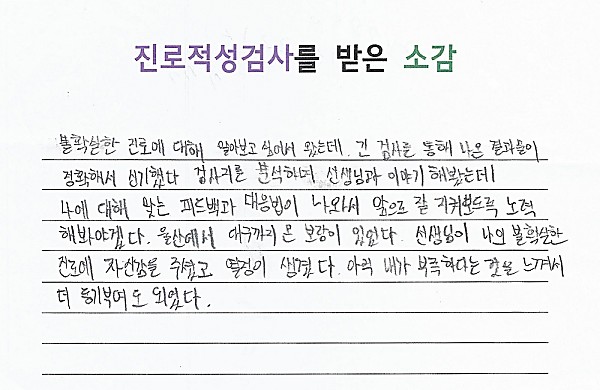 진로적성검사를 받은 소감
불확실한 진로에 대해 알아보고 싶어서 왔는데. 긴 검사를 통해 나온 결과들이
정확해서 신기했다 검사지를 분석하며 선생님과 이야기 해봤는데
나에 대해 맞는 피드백과 대응법이 나와서 앞으로 잘 지켜보도록 노력
해봐야겠다. 울산에서 대구까지 온 보람이 있었다. 선생님이 나의 불확실한
진로에 자신감을 주셨고 열정이 생겼다. 아직 내가 부족하다는 것을 느껴서
더 동기부여도 되었다.